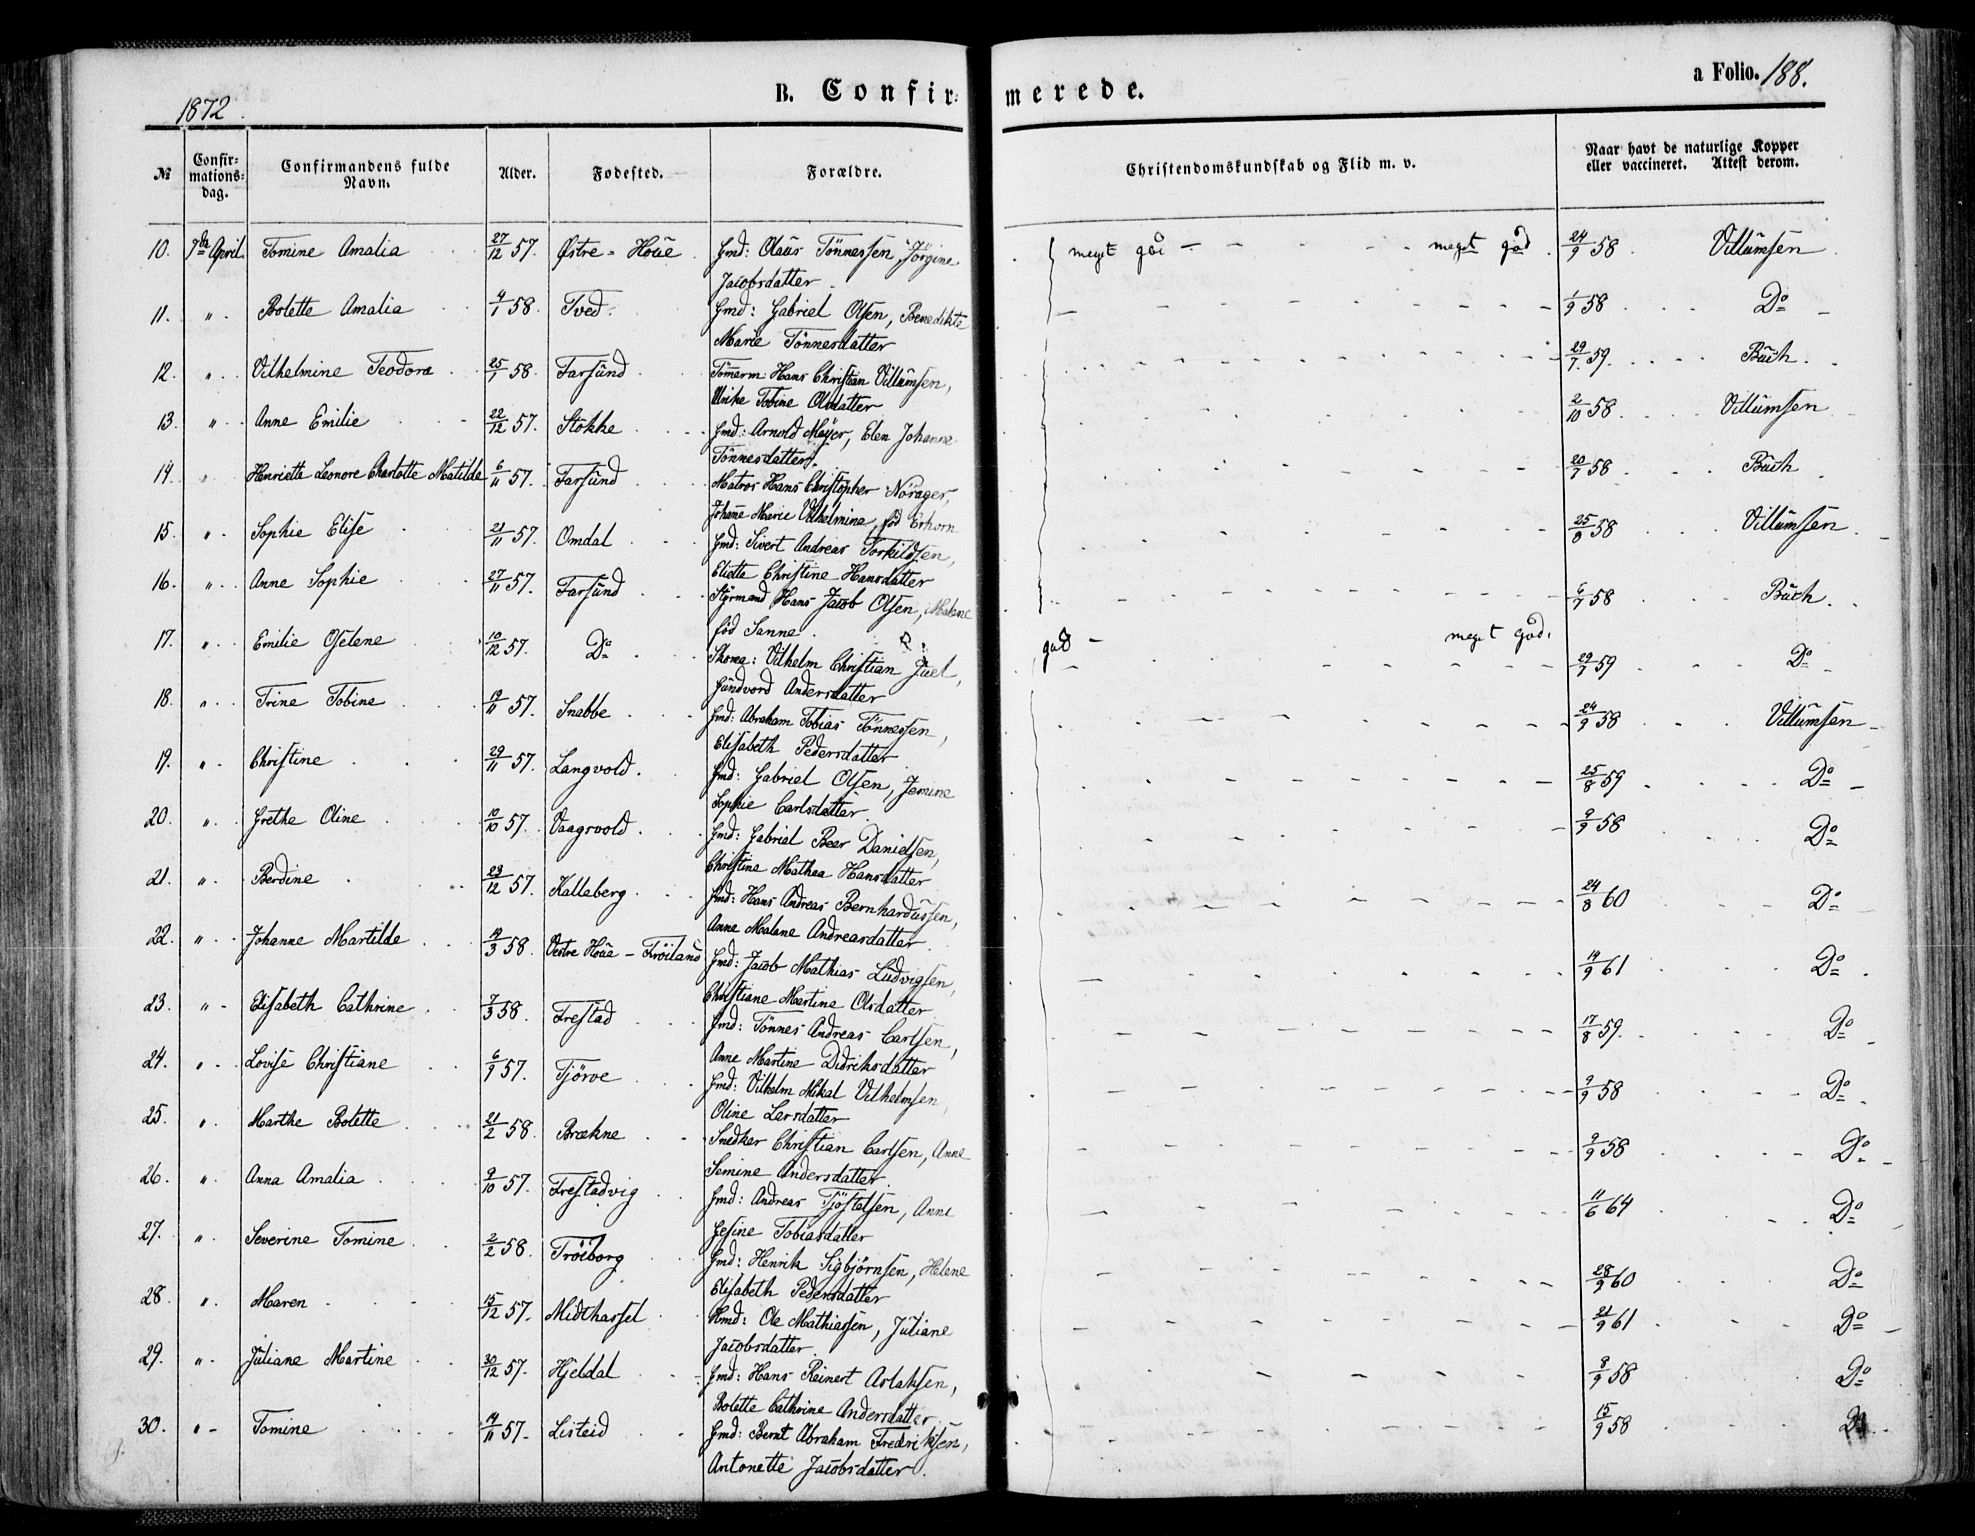 1872.
B. Confir=
merede.
a Folio. 188.
№
Confir=
mations=
dag.
Confirmandens fulde
Navn.
Alder.
Fødested.
Forældre.
Christendomskundskab og Flid m. v.
Naar havt de naturlige Kopper
eller vaccineret. Attest derom.
10. 7de April. Tomine Amalia 27/12 57. Østre-Houe. Gmd: Olaus Tönnessen, Jörgine meget god - meget god. 24/9 58. Villumsen
Jacobsdatter.
11. " Bolette Amalia 4/1 58. Tved. Gmd: Gabriel Olsen, Benedikte 1/9 58 Do
Marie Tönnesdatter
12. " Vilhelmine Teodora 25/1 58. Farsund Tömerm: Hans Christian Villumsen, 29/7 59. Buch.
Ulrike Tobine Olsdatter
13. " Anne Emilie 22/12 57. Stokke Gmd: Arnold Meyer, Elen Johanne 2/10 58. Villumsen
Tönnesdatter.
14. " Henriette Leonore Charlotte Matilde 6/11 57. Farsund Matros Hans Christopher Nörager, 20/7 58 Buch
Johane Marie Vilhelmine, fød Erhorn
15. " Sophie Elise 21/11 57. Omdal Gmd: Sivert Andreas Torkildsen, 25/8 58 Villumsen
Eliette Christine Hansdatter
16. " Anne Sophie 27/11 57. Farsund Styrmand Hans Jacob Olsen, Malene 6/7 58 Buch.
fød Sanne.
17. " Emilie Oselene 10/12 57. Do Skoma: Vilhelm Christian Juel, god - meget god. 29/7 59 Do
Gundvord Andersdatter
18. " Trine Tobine 19/11 57. Snabbe Gmd: Abraham Tobias Tönnessen, 24/9 58 Villumsen
Elisabeth Pedersdatter
19. " Christine 29/11 57. Langvold. Gmd: Gabriel Olsen, Jemine 25/8 59 Do
Sophie Carlsdatter.
20. " Grethe Oline 10/10 57. Vaagsvold. Gmd: Gabriel Beer Danielsen, 9/9 58 Do
Christine Mathea Hansdatter
21. " Berdine 23/12 57. Kalleberg. Gmd: Hans Andreas Bernhardussen, 24/8 60 Do
Anne Malene Andreasdatter
22. " Johanne Martilde 14/3 58. Vestre Houe - Fröiland Gmd: Jacob Mathias Ludvigsen, 14/9 61 Do
Christiane Martine Olsdatter
23. " Elisabeth Cathrine 7/3 58. Frestad Gmd: Tönnes Andreas Carlsen, 17/8 59. Do
Anne Martine Didriksdatter
24. " Lovise Christiane 6/9 57. Tjörve Gmd: Vilhelm Mikal Vilhelmsen, 9/9 58 Do
Oline Larsdatter
25. " Marthe Bolette 21/2 58. Brækne Snedker Christian Carlsen, Anne 9/9 58 Do
Semine Andersdatter.
26. " Anna Amalia 9/10 57. Frestadvig Gmd: Andreas Tjöstelsen, Anne 11/6 64 Do
Gesine Tobiasdatter
27. " Severine Tomine 2/2 58. Fröiborg Gmd: Henrik Sigbjörnsen, Helene 28/9 60 Do
Elisabeth Pedersdatter
28. " Maren 15/12 57. Midthassel Hmd: Ole Mathiassen, Juliane 21/9 61 Do
Jacobsdatter.
29. " Juliane Martine 30/12 57. Hjeldal Gmd: Hans Reinert Aslaksen, 8/9 58 Do
Bolette Cathrine Andersdatter.
30. " Tomine 14/11 57. Listeid Gmd: Bernt Abraham Fredriksen, 15/9 58
Antonette Jacobsdatter.